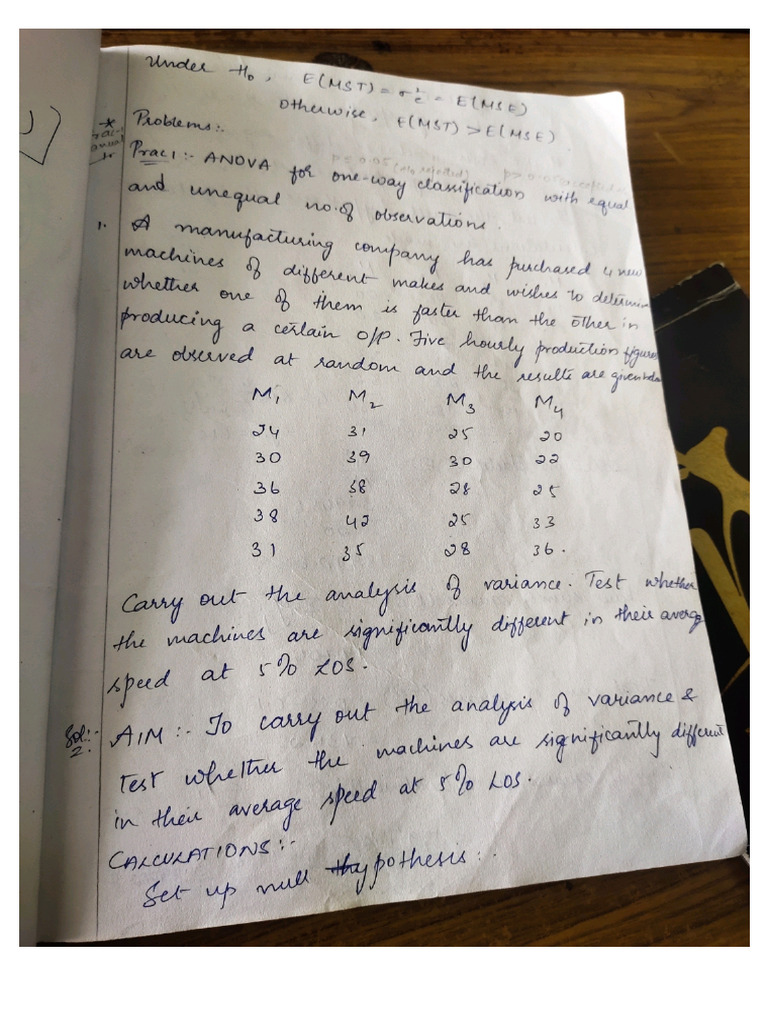 Under H₀, E(MST) = σ²ₑ = E(MSE)
Otherwise, E(MST) > E(MSE)
* Problems:-
Prac 1:- ANOVA for one-way classification with equal
and unequal no. of observations.
1. A manufacturing company has purchased 4 new
machines of different makes and wishes to determine
whether one of them is faster than the other in
producing a certain o/p. Five hourly production figures
are observed at random and the results are given below
M₁ M₂ M₃ M₄
24 31 25 20
30 39 30 22
36 38 28 25
38 42 25 33
31 35 28 36.
Carry out the analysis of variance. Test whether
the machines are significantly different in their average
speed at 5% LOS.
Sol:- AIM :- To carry out the analysis of variance &
test whether the machines are significantly different
in their average speed at 5% LOS.
CALCULATIONS:-
Set up null hypothesis:-